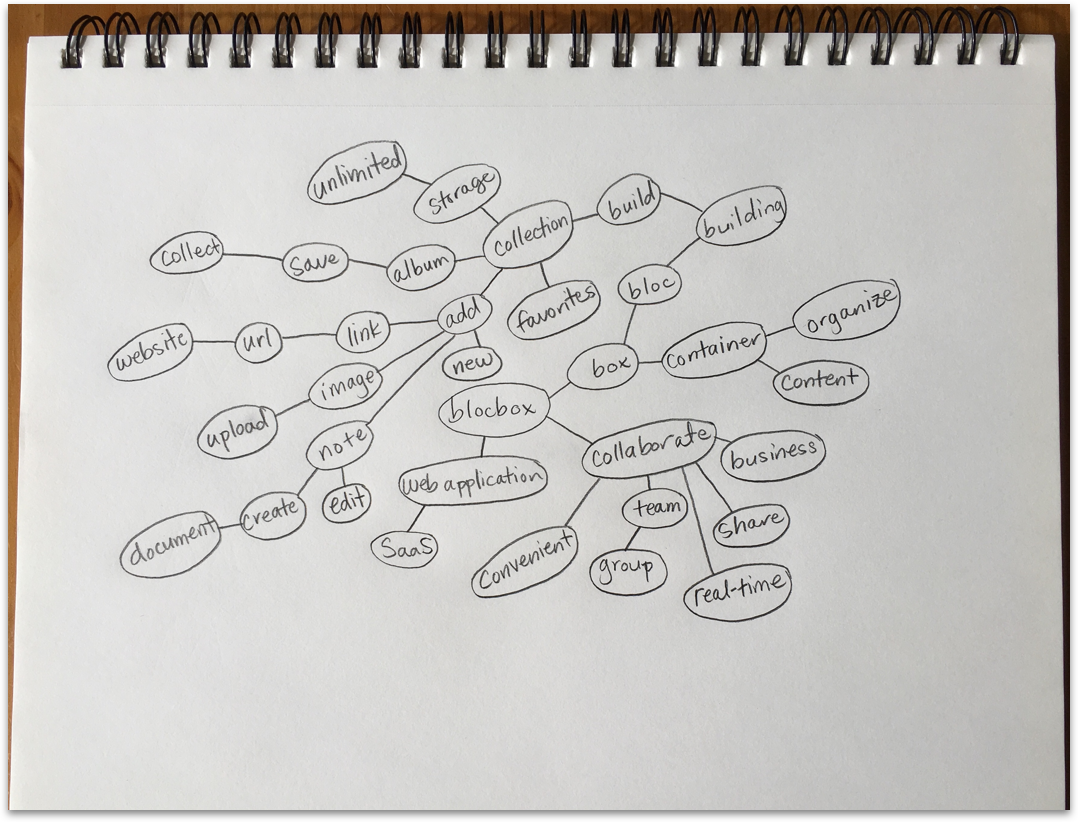 unlimited
storage
collection
build
building
collect
save
album
bloc
favorites
add
organize
website
url
link
new
box
container
content
image
upload
blocbox
note
collaborate
business
web application
edit
create
document
SaaS
team
share
convenient
group
real-time